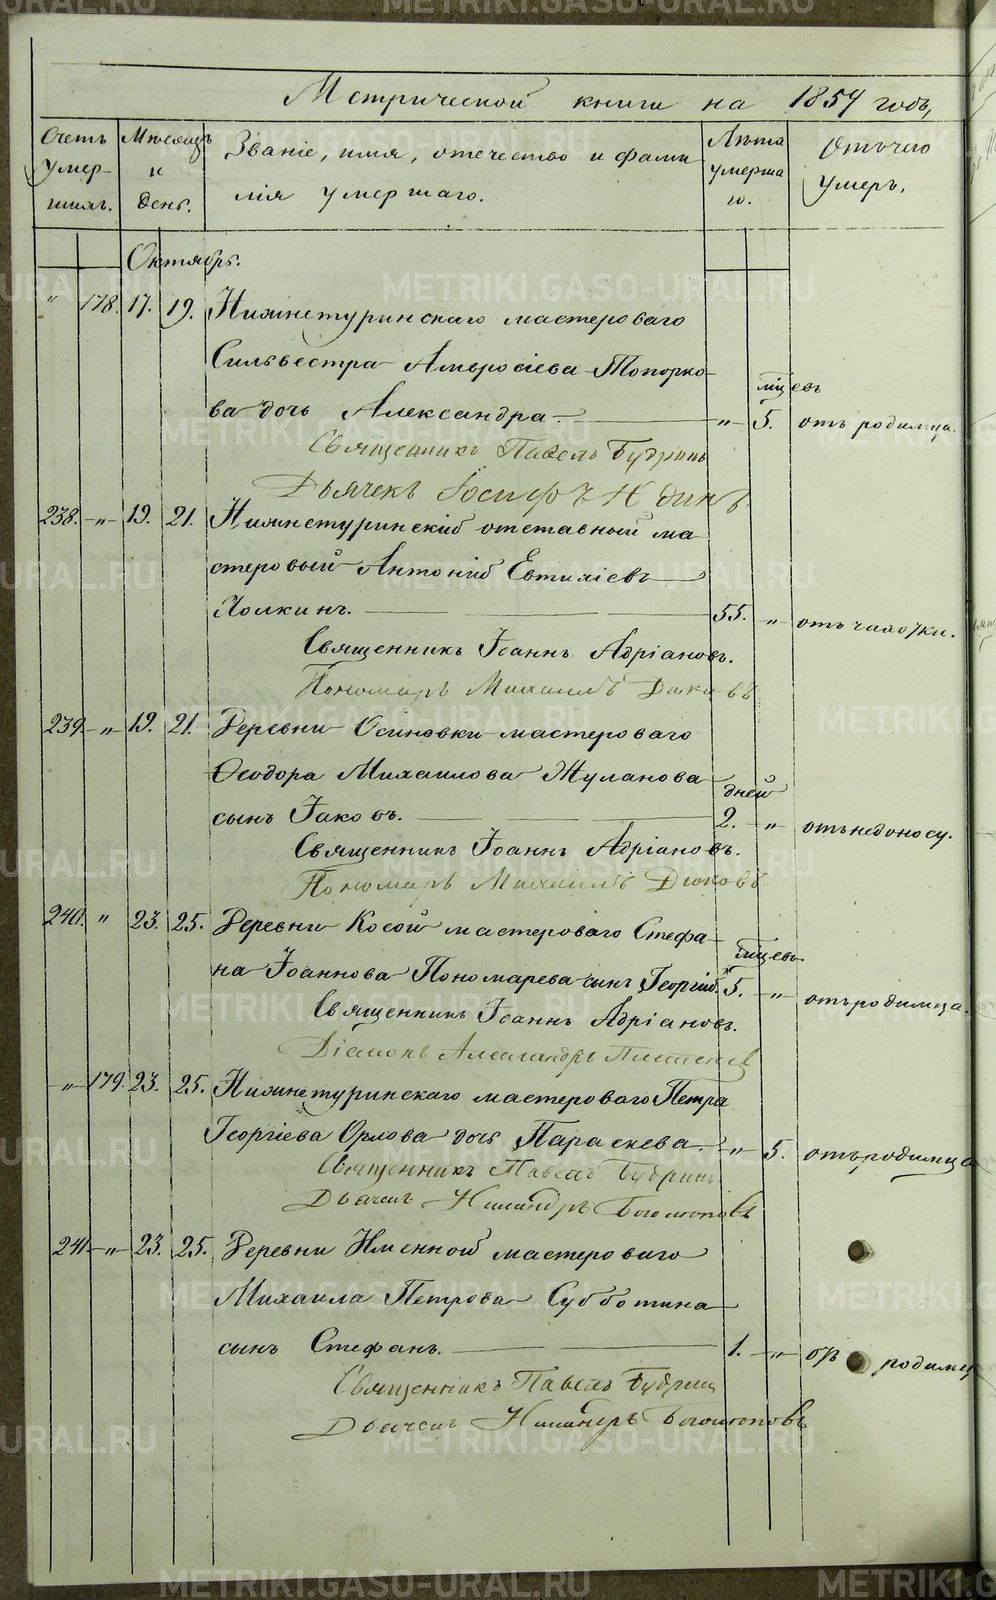 Метрической книги на 1854 годъ,
Счетъ умер- шихъ.
Мѣсяцъ и день.
Званіе, имя, отечество и фами- лія умершаго.
Лѣта умерша го.
Отъ чего умеръ.
Октябрь.
" 178. 17. 19. Нижнетуринскаго мастероваго
Сильвестра Амвросіева Топорко-
мцевъ
ва дочь Александра — " 5. отъ родимца.
Священникъ Павелъ Будринъ
Дьячекъ Іосифъ
238. " 19. 21. Нижнетуринскій отставный ма
стеровый Антоній Евтихіевъ
Холкинъ. — 55. " отъ чахотки.
Священникъ Іоаннъ Адріановъ.
Пономарь Михаилъ Дюковъ
239. " 19. 21. Деревни Осиновки мастероваго
Ѳеодора Михаилова Жуланова
дней
сынъ Іаковъ. — 2. " отъ недоносу.
Священникъ Іоаннъ Адріановъ.
Пономарь Михаилъ Дюковъ
240. " 23. 25. Деревни Косой мастероваго Стефа-
мцевъ.
на Іоаннова Пономарева сынъ Георгій. 5. " отъ родимца.
Священникъ Іоаннъ Адріановъ.
Діаконъ Александръ
" 179. 23. 25. Нижнетуринскаго мастероваго Петра
Георгіева Орлова дочь Параскева. " 5. отъ родимца
Священникъ Павелъ Будринъ
Дьячекъ Никандръ Богомоловъ
241. " 23. 25. Деревни Именной мастероваго
Михаила Петрова Субботина
сынъ Стефанъ. — 1. " отъ родимц
Священникъ Павелъ Будрин
Дьячекъ Никандръ Богомоловъ
METRIKI.GASO-URAL.RU